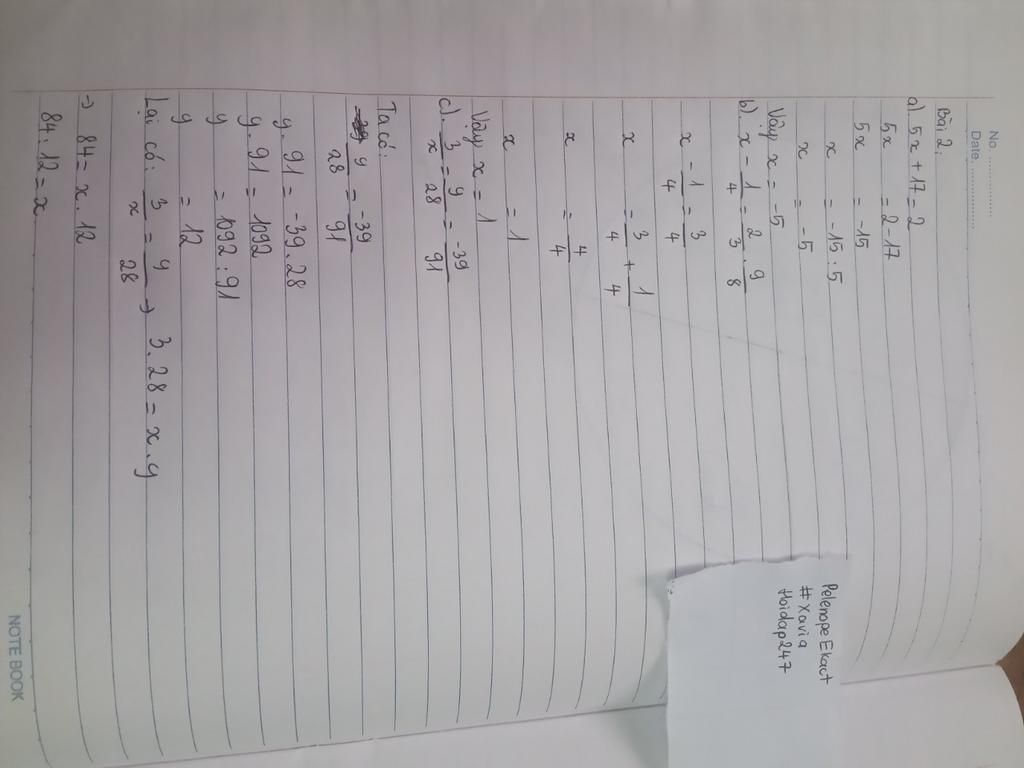 No. ....................
Date. ..................
Bài 2:
a) 5x + 17 = 2
5x = 2 - 17
5x = -15
x = -15 : 5
x = -5
Vậy x = -5
b) x - 1/4 = 2/3 . 9/8
x - 1/4 = 3/4
x = 3/4 + 1/4
x = 4/4
x = 1
Vậy x = 1
c) 3/x = y/28 = -39/91
Ta có:
y/28 = -39/91
y. 91 = -39. 28
y. 91 = 1092
y = 1092 : 91
y = 12
Lại có: 3/x = y/28 → 3. 28 = x. y
→ 84 = x. 12
84 : 12 = x
Pelenope Ekact
# Xavia
Hoidap247
NOTE BOOK